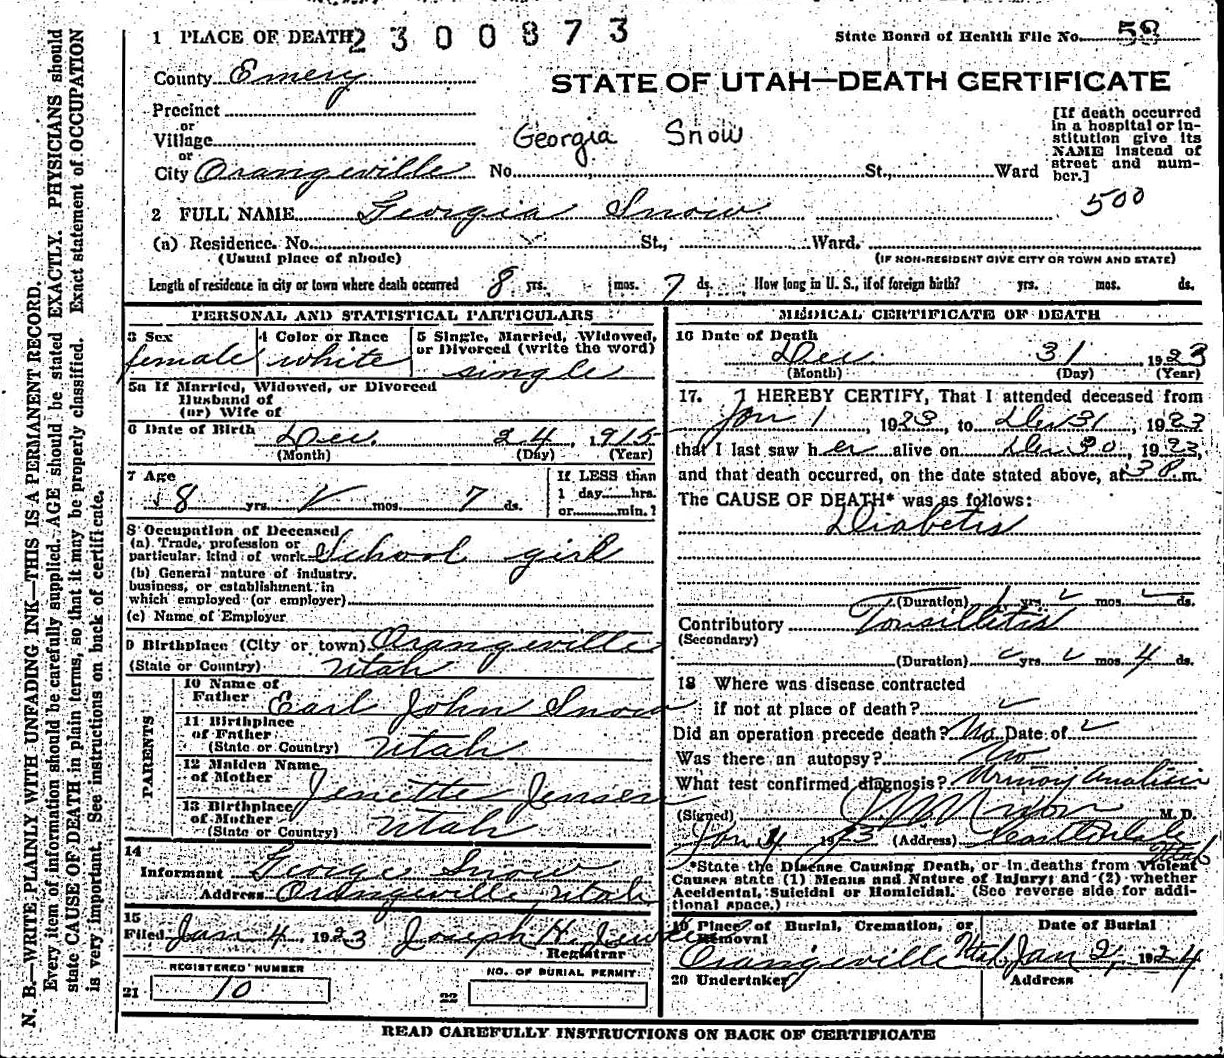 1 PLACE OF DEATH
2300873
State Board of Health File No. 58
County Emery
STATE OF UTAH—DEATH CERTIFICATE
Precinct
or
Village
or
City Orangeville No. St., Ward
Georgia Snow
[If death occurred in a hospital or institution give its NAME instead of street and number.]
500
2 FULL NAME Georgia Snow
(a) Residence. No. St., Ward.
(Usual place of abode) (IF NON-RESIDENT GIVE CITY OR TOWN AND STATE)
Length of residence in city or town where death occurred 8 yrs. mos. 7 ds. How long in U. S., if of foreign birth? yrs. mos. ds.
PERSONAL AND STATISTICAL PARTICULARS
3 Sex
female
4 Color or Race
white
5 Single, Married, Widowed, or Divorced (write the word)
single
5a If Married, Widowed, or Divorced
Husband of
(or) Wife of
6 Date of Birth Dec. 24, 1915
(Month) (Day) (Year)
7 Age
8 yrs. mos. 7 ds.
If LESS than
1 day hrs.
or min.?
8 Occupation of Deceased
(a) Trade, profession or
particular kind of work School girl
(b) General nature of industry,
business, or establishment in
which employed (or employer)
(c) Name of Employer
9 Birthplace (City or town) Orangeville
(State or Country) Utah
PARENTS
10 Name of
Father Earl John Snow
11 Birthplace
of Father
(State or Country) Utah
12 Maiden Name
of Mother Jenette Jensen
13 Birthplace
of Mother
(State or Country) Utah
14
Informant George Snow
Address Orangeville, Utah
15
Filed Jan 4, 1923 Joseph H. Jewkes
Registrar
REGISTERED NUMBER
21 10
NO. OF BURIAL PERMIT
22
MEDICAL CERTIFICATE OF DEATH
16 Date of Death
Dec 31, 1923
(Month) (Day) (Year)
17. I HEREBY CERTIFY, That I attended deceased from
Jan 1, 1923, to Dec 31, 1923
that I last saw her alive on Dec 30, 1923,
and that death occurred, on the date stated above, at 3 P. m.
The CAUSE OF DEATH* was as follows:
Diabetis
(Duration) 1 yrs. mos. ds.
Contributory Tonsilletis
(Secondary)
(Duration) yrs. mos. 4 ds.
18 Where was disease contracted
if not at place of death?
Did an operation precede death? No Date of
Was there an autopsy? No
What test confirmed diagnosis? Urinary Analisis
(Signed) M. D.
Jan 4 1923 (Address) Castledale
Utah
*State the Disease Causing Death, or in deaths from Violent
Causes state (1) Means and Nature of Injury; and (2) whether
Accidental, Suicidal or Homicidal. (See reverse side for addi-
tional space.)
19 Place of Burial, Cremation, or
Removal
Orangeville Utah
Date of Burial
Jan 2, 1924
20 Undertaker
Address
READ CAREFULLY INSTRUCTIONS ON BACK OF CERTIFICATE
N. B.—WRITE PLAINLY WITH UNFADING INK—THIS IS A PERMANENT RECORD.
Every item of information should be carefully supplied. AGE should be stated EXACTLY. PHYSICIANS should
state CAUSE OF DEATH in plain terms, so that it may be properly classified. Exact statement of OCCUPATION
is very important. See instructions on back of certificate.